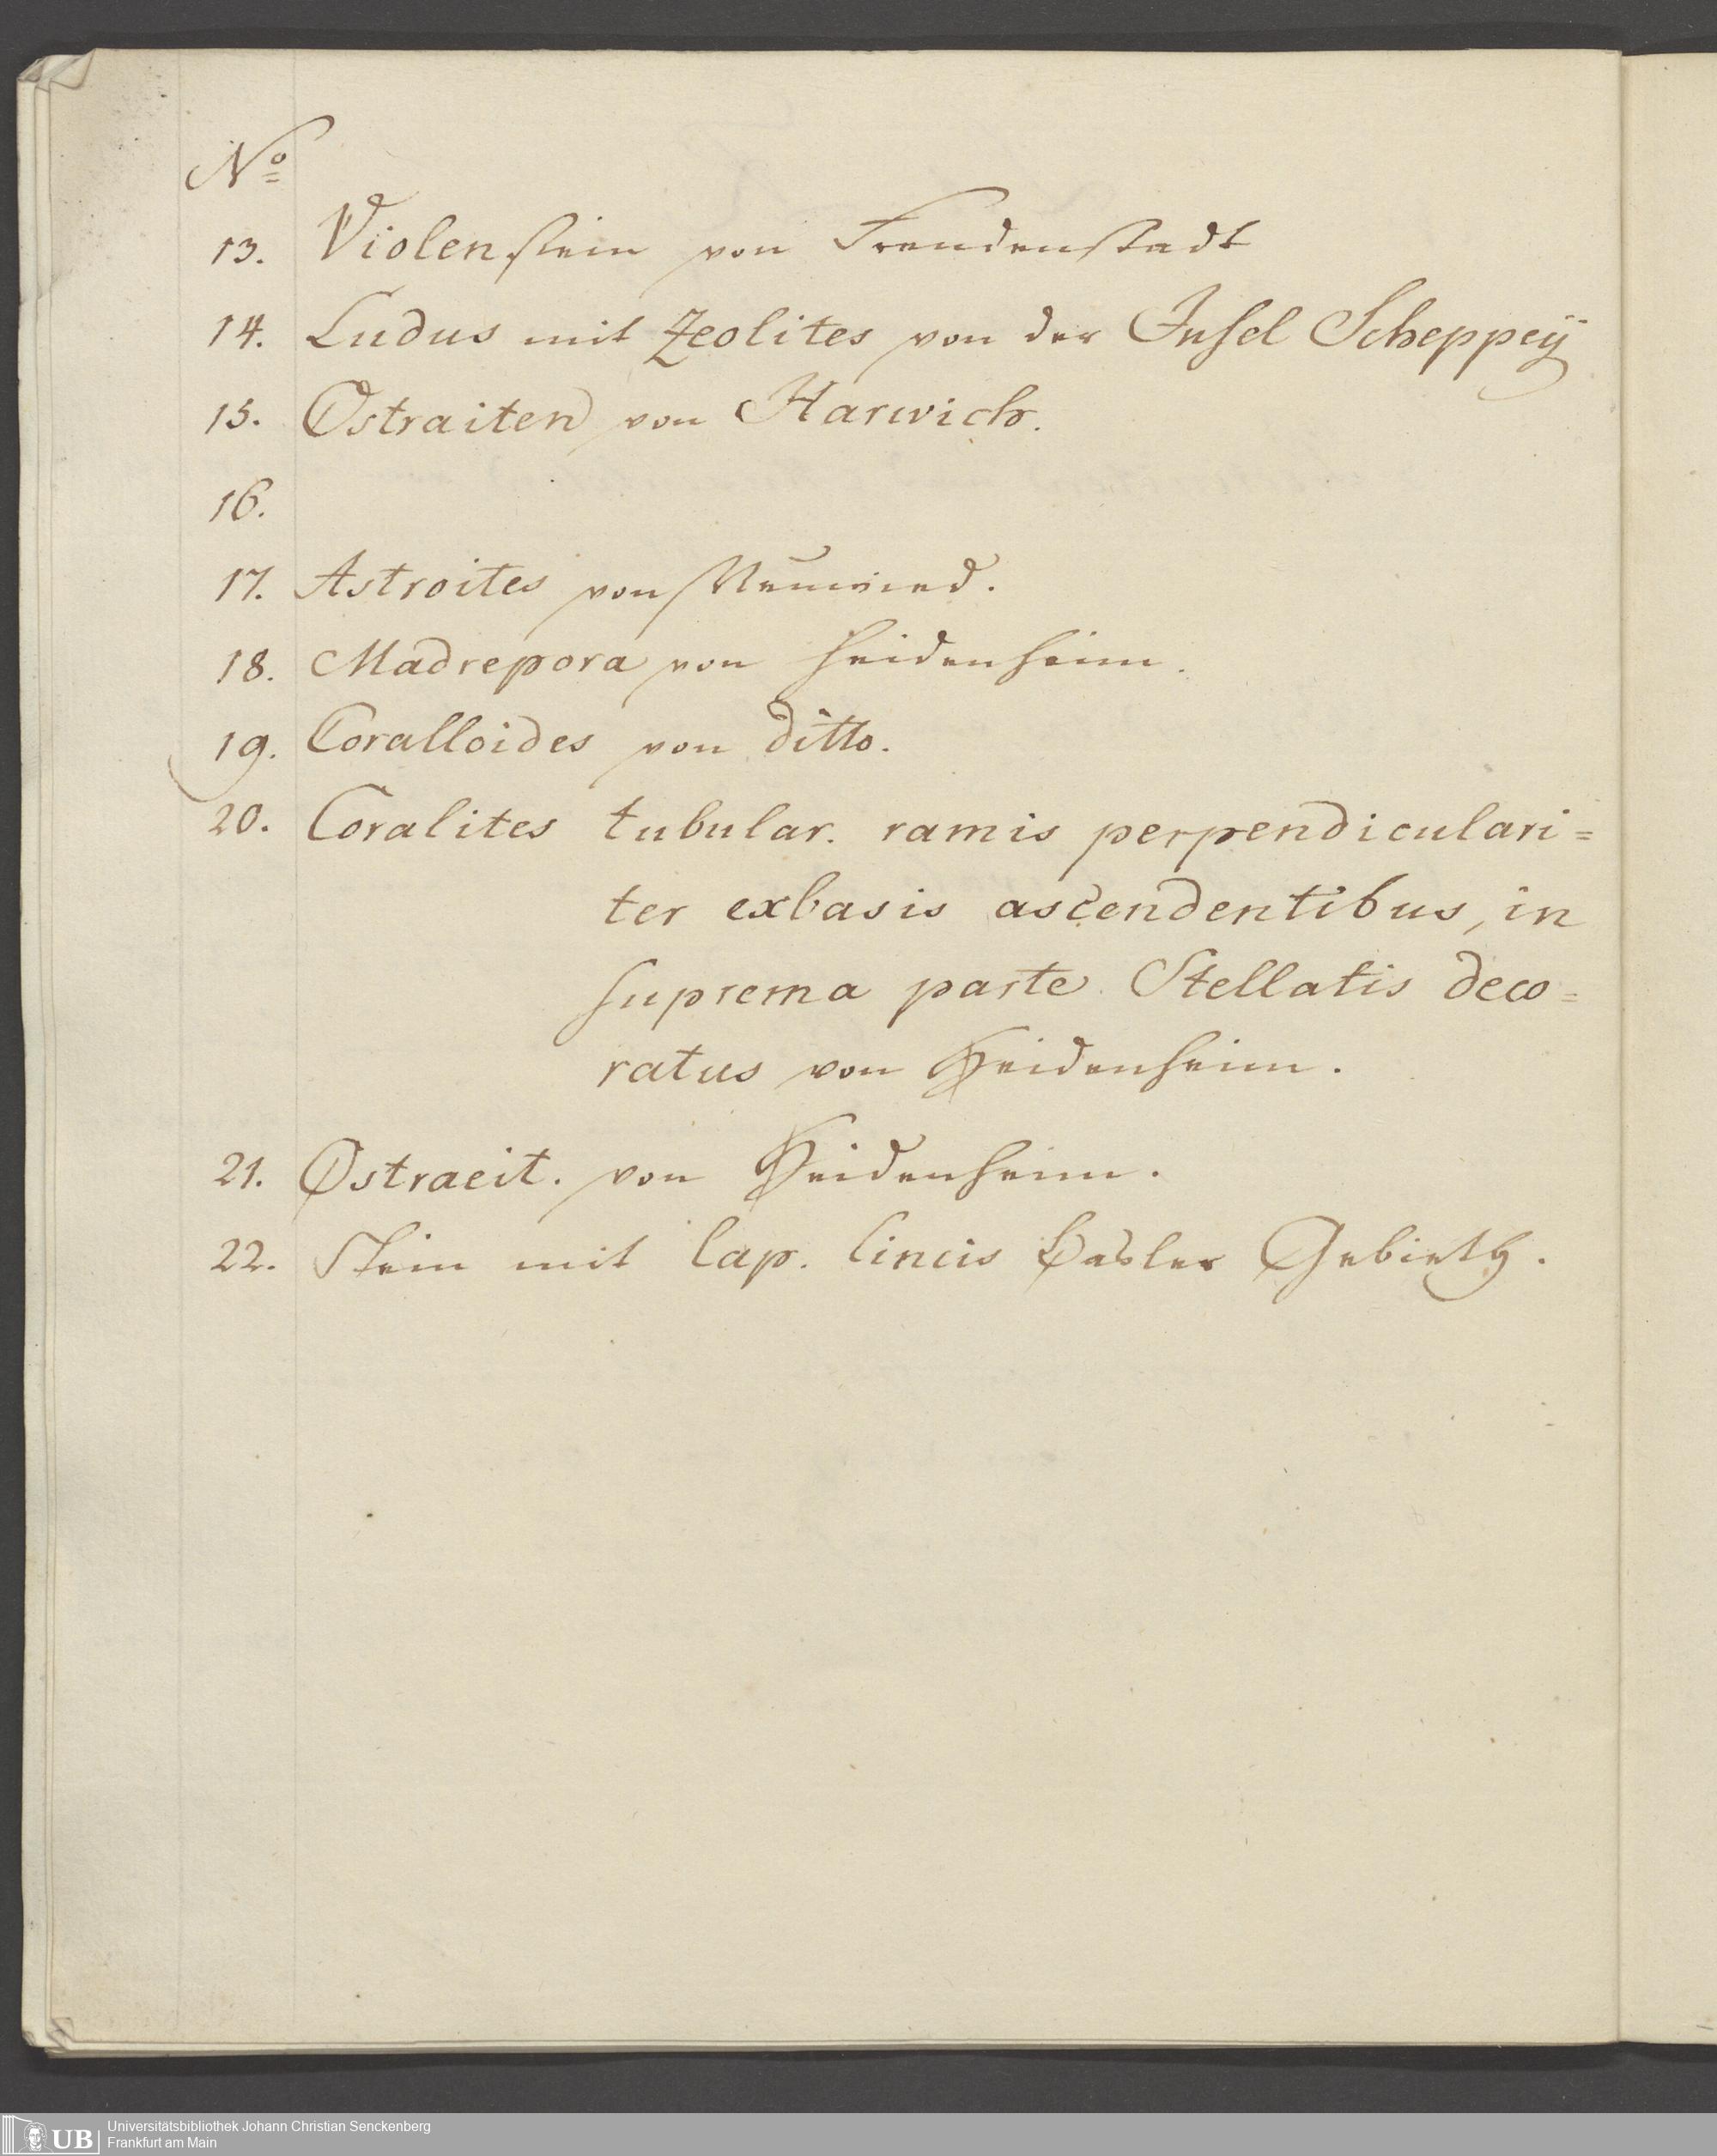 No
13. Violenstein von Freudenstadt
14. Ludus mit Zeolites von der Insel Scheppeÿ
15. Ostraiten von Harwich.
16.
17. Astroites von Neuwied.
18. Madrepora von Heidenheim.
19. Coralloides von ditto.
20. Coralites tubular. ramis perpendiculari=
ter exbasis ascendentibus, in
suprema parte Stellatis deco=
ratus von Heidenheim.
21. Ostraeit. von Heidenheim.
22. Stein mit lap. lincis Basler Gebieth.
UB Universitätsbibliothek Johann Christian Senckenberg
Frankfurt am Main